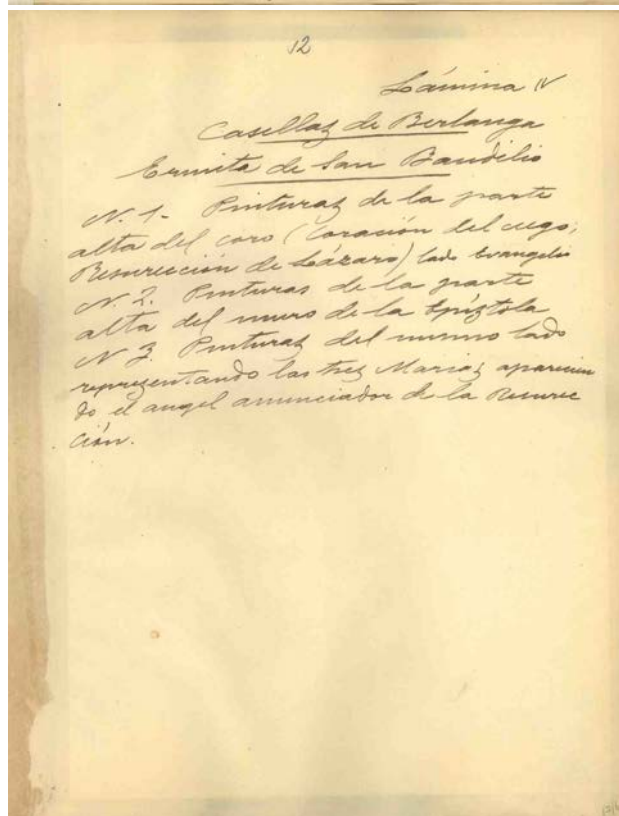 12
Lámina IV
Casillas de Berlanga
Ermita de San Baudilio
N. 1- Pinturas de la parte
alta del coro (Coración del ciego;
Resurrección de Lázaro) lado Evangelio
N. 2. Pinturas de la parte
alta del muro de la Epístola
N 3. Pinturas del mismo lado
representando las tres Marias aparecien
do el angel anunciador de la Resurrec
ción.